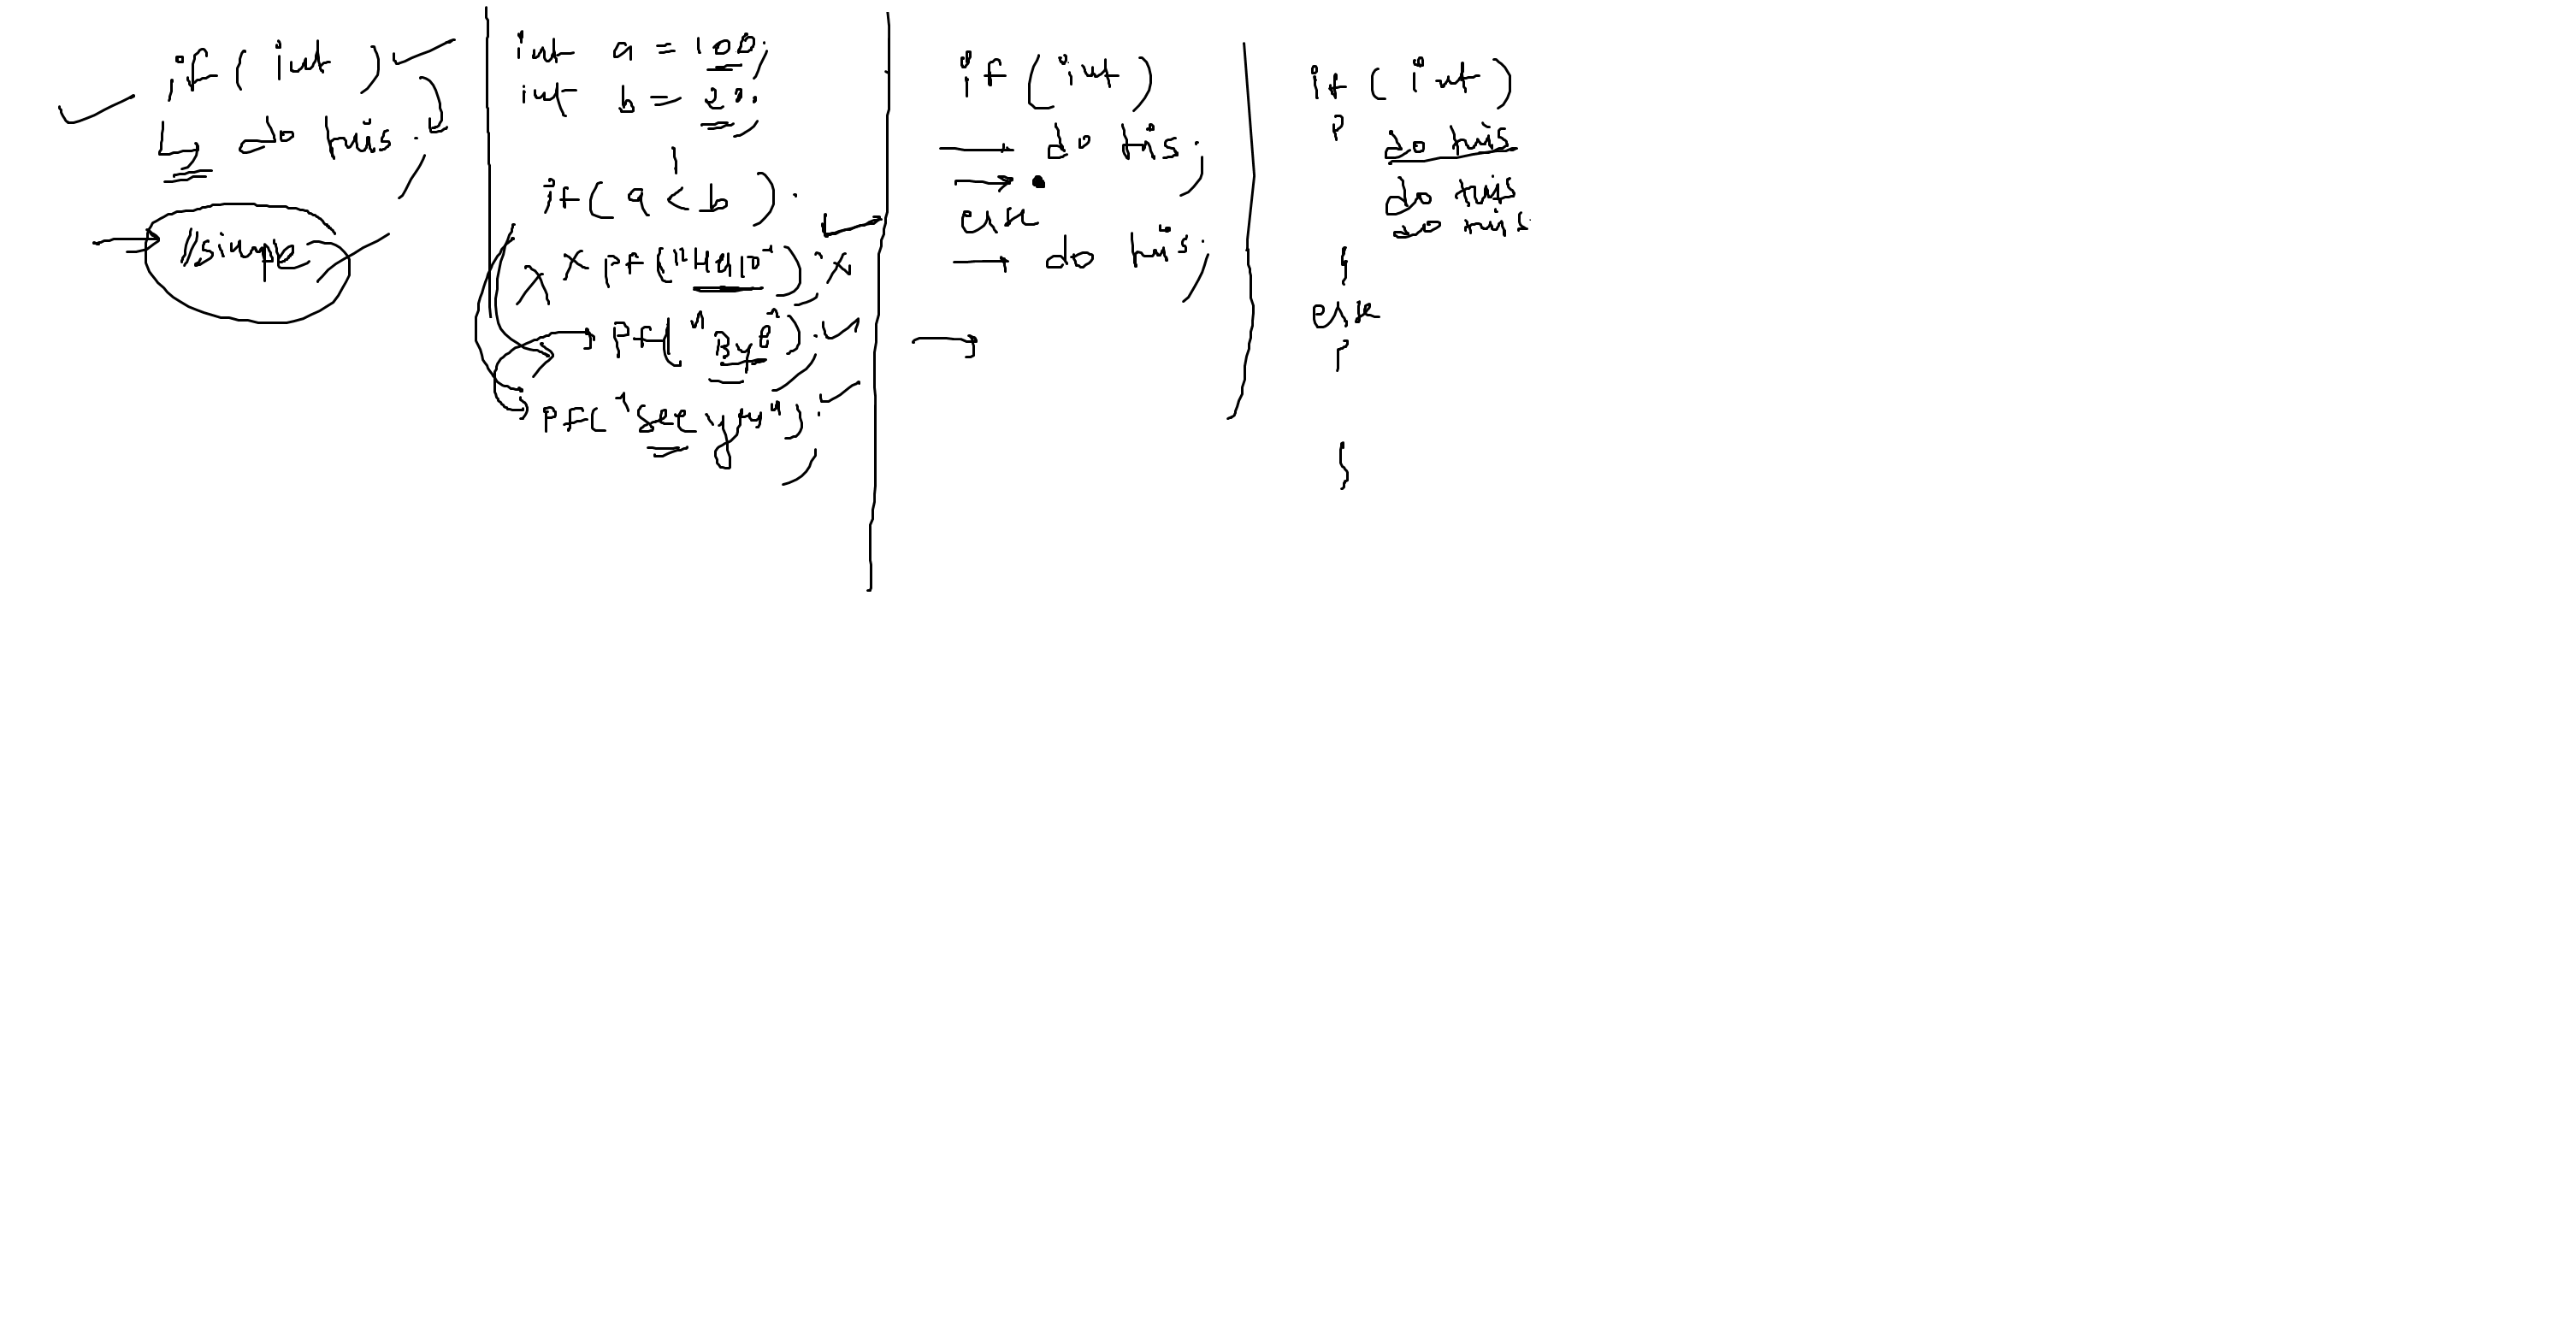 if ( int )
do this ;
//simple
int a = 100;
int b = 20;
if( a < b )
pf("Hello");
pf("Bye");
pf("see you");
if (int)
do this;
else
do this;
if ( int )
{
do this
do this
do this
}
else
{
}